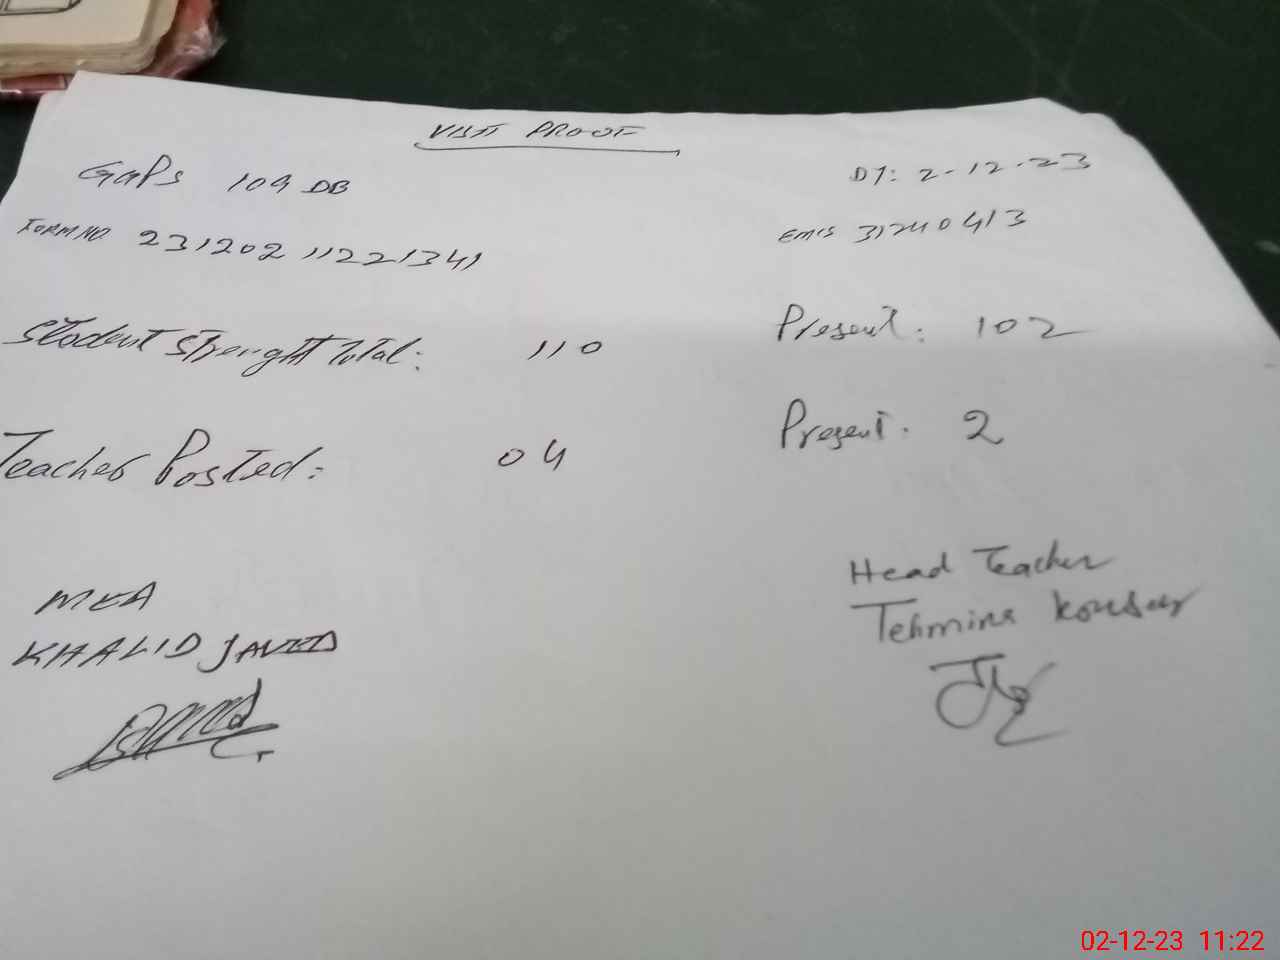 VISIT PROOF
GGPS 109 DB DT: 2-12-23
FORM NO 23120211221341 EMIS 31240413
Student Strenght Total: 110 Present: 102
Teacher Posted: 04 Present. 2
MEA Head Teacher
KHALID JAVED Tehmina Kousar
02-12-23 11:22